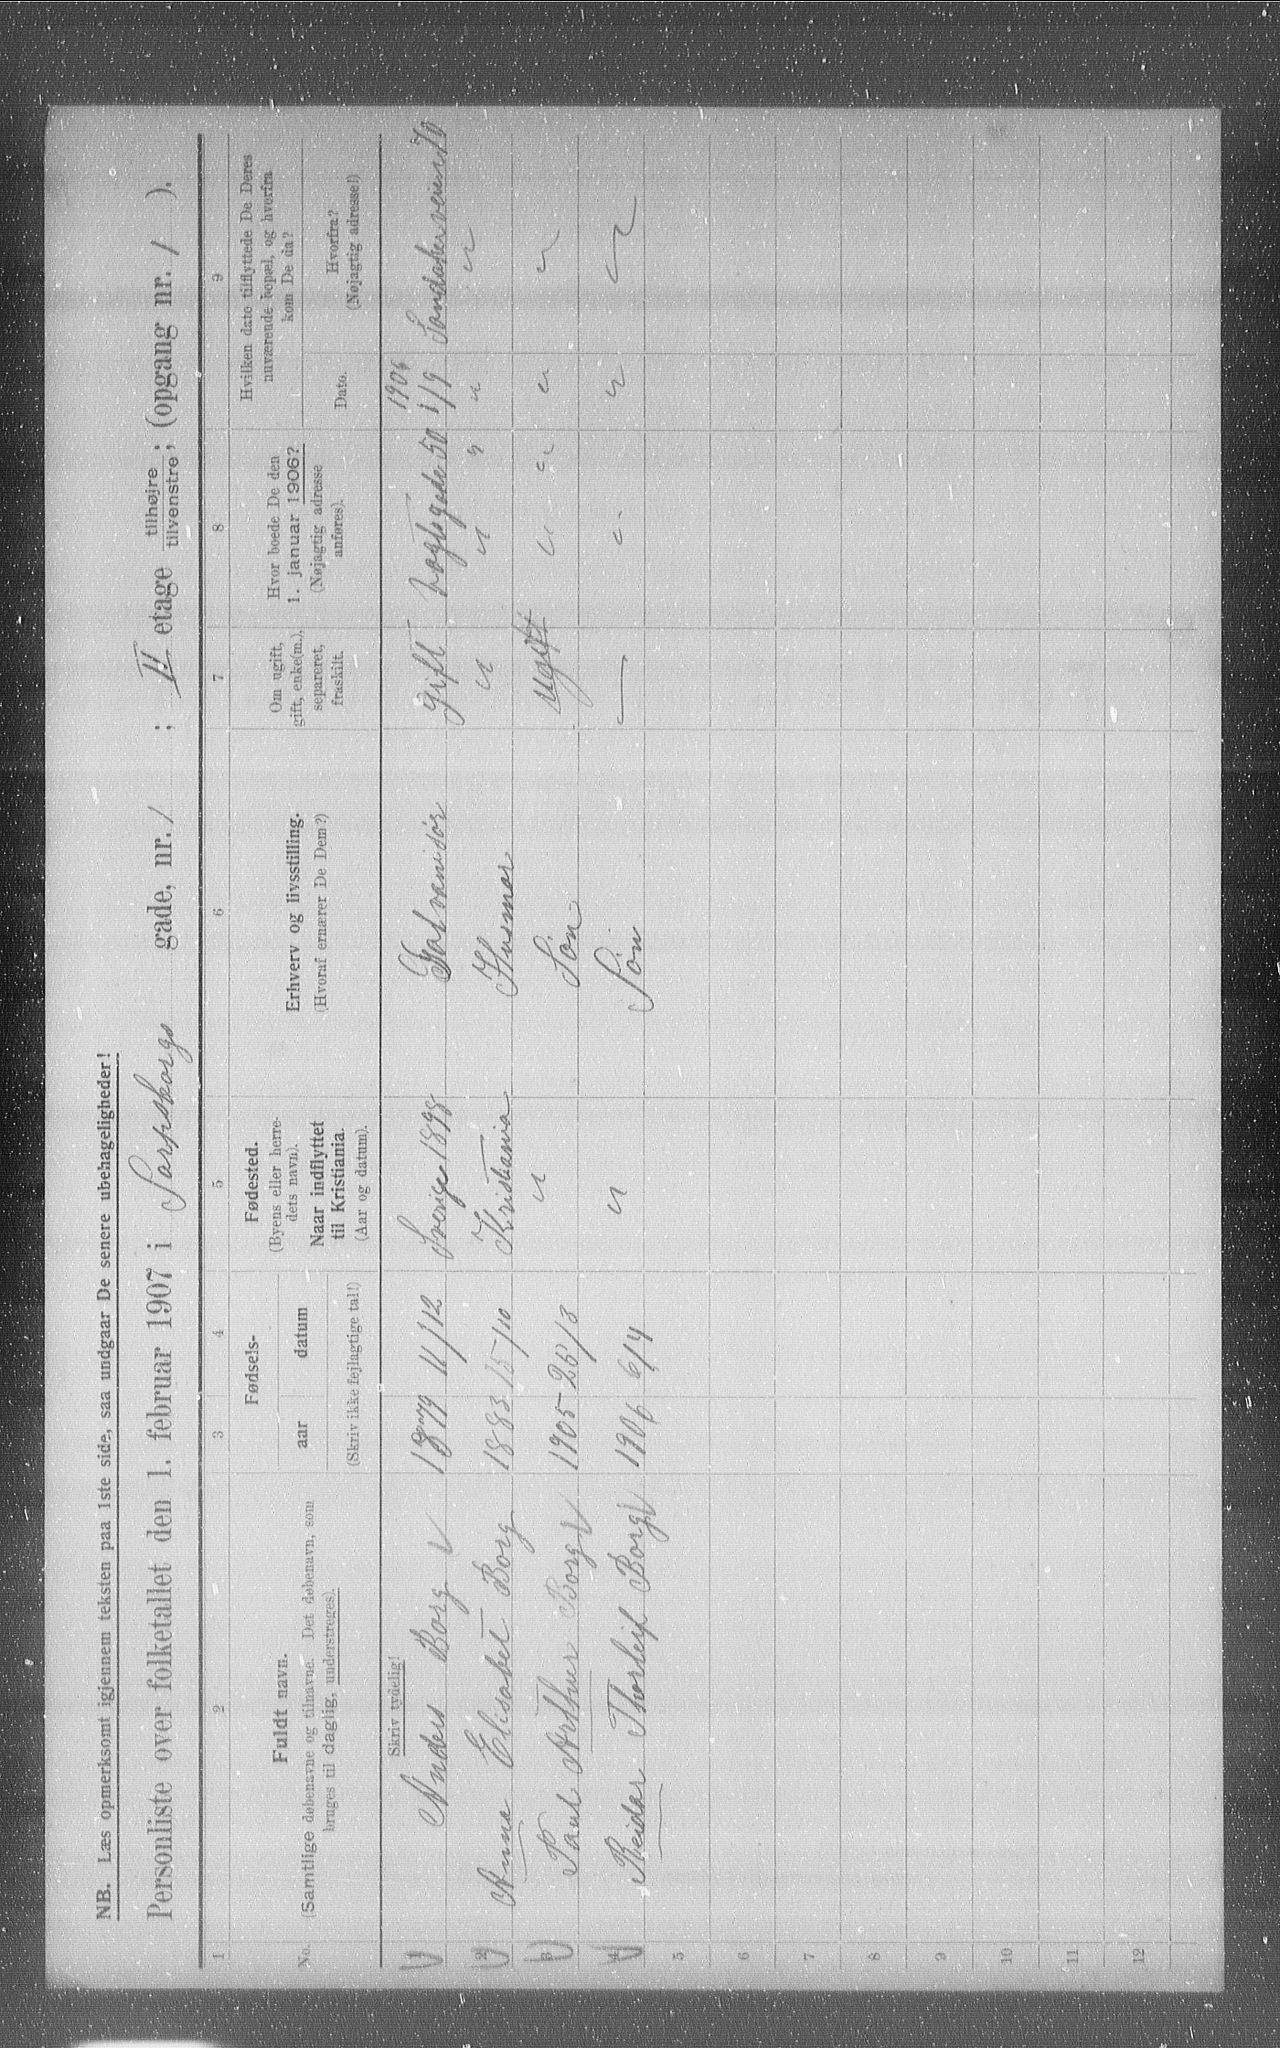 NB. Læs opmerksomt igjennem teksten paa 1ste side, saa undgaar De senere ubehageligheder!
Personliste over folketallet den 1. februar 1907 i Sarpsborgs gade, nr. 1 ; II etage tilhøjre / tilvenstre ; (opgang nr. 1 ).
1 2 3 4 5 6 7 8 9
No.
Fuldt navn.
(Samtlige døbenavne og tilnavne. Det døbenavn, som
bruges til daglig, understreges).
Fødsels-
aar datum
(Skriv ikke fejlagtige tal!)
Fødested.
(Byens eller herre-
dets navn).
Naar indflyttet
til Kristiania.
(Aar og datum).
Erhverv og livsstilling.
(Hvoraf ernærer De Dem?)
Om ugift,
gift, enke(m.),
separeret,
fraskilt.
Hvor boede De den
1. januar 1906?
(Nøjagtig adresse
anføres).
Hvilken dato tilflyttede De Deres
nuværende bopæl, og hvorfra
kom De da?
Dato.
Hvorfra?
(Nøjagtig adresse!)
Skriv tydelig!
1 Anders Borg 1879 11/12 Sverige 1898 Galvanisør gift Vogtsgade 50 1906 1/9 Sandakerveien 70
2 Anna Elisabet Borg 1883 15/10 Kristiania Husmor " " " " "
3 Paul Arthur Borg 1905 25/3 " Søn ugift " " " "
4 Reidar Thorleif Borg 1906 6/4 " Søn — " " "
5
6
7
8
9
10
11
12